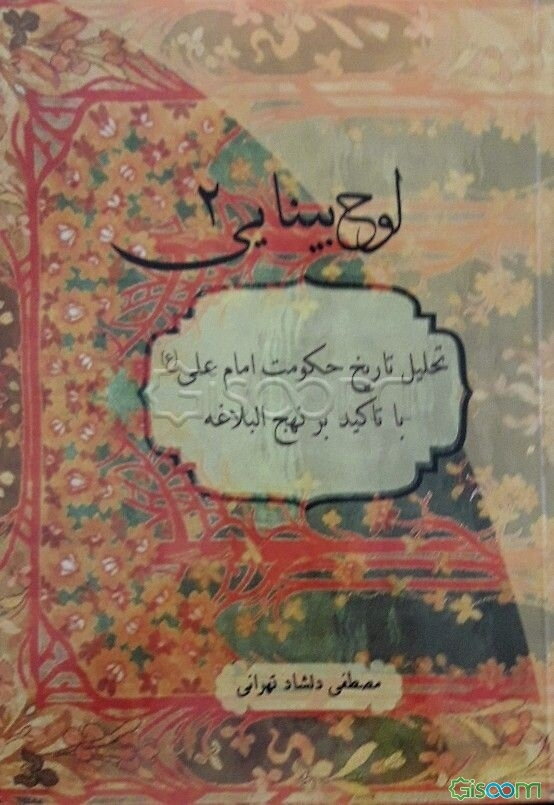 لوح بینایی ۲
تحلیل تاریخ حکومت امام علی (ع)
با تاکید بر نهج البلاغه
مصطفی دلشاد تهرانی
Gisoom
Gisoom